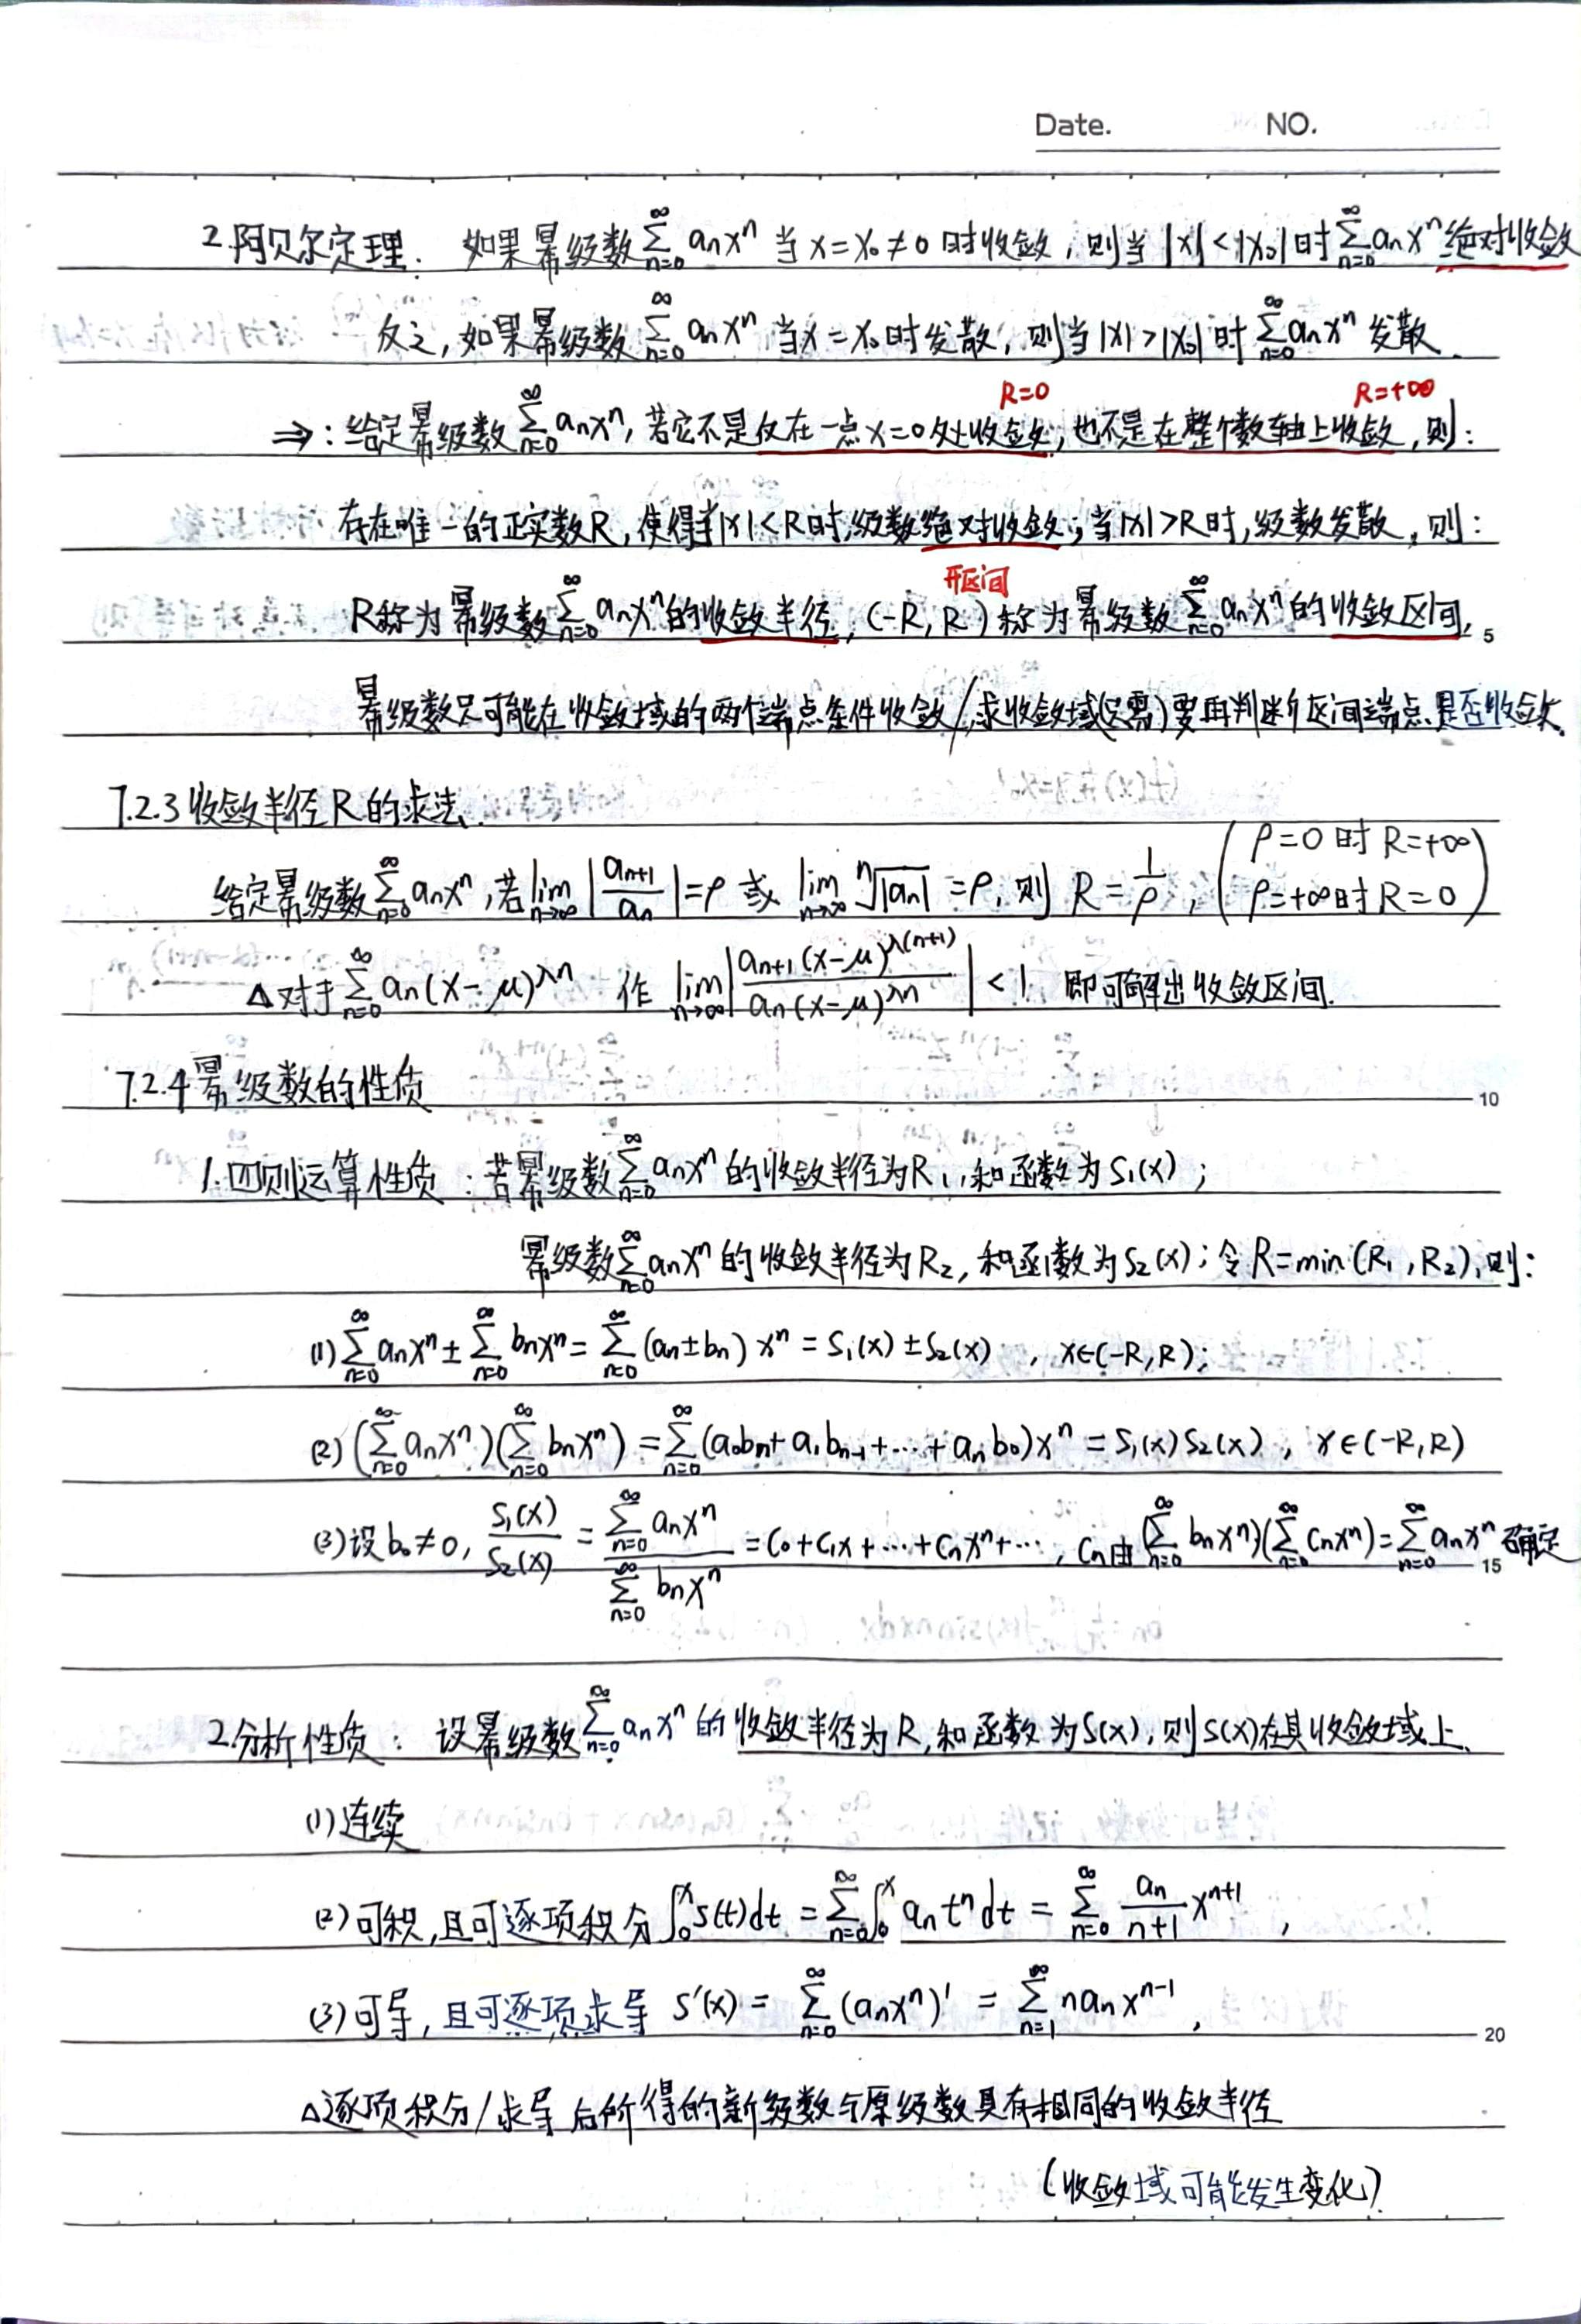 Date. NO.
2.阿贝尔定理: 如果幂级数∑_{n=0}^{∞} aₙxⁿ 当 x=x₀≠0 时收敛,则当 |x|<|x₀| 时 ∑_{n=0}^{∞} aₙxⁿ 绝对收敛
反之,如果幂级数∑_{n=0}^{∞} aₙxⁿ 当x=x₀时发散,则当|x|>|x₀|时 ∑_{n=0}^{∞} aₙxⁿ 发散.
R=0 R=+∞
⇒:给定幂级数∑_{n=0}^{∞} aₙxⁿ,若它不是仅在一点x=0处收敛,也不是在整个数轴上收敛,则:
存在唯一的正实数R,使得当|x|<R时,级数绝对收敛;当|x|>R时,级数发散,则:
开区间
R称为幂级数∑_{n=0}^{∞} aₙxⁿ的收敛半径,(-R,R)称为幂级数∑_{n=0}^{∞} aₙxⁿ的收敛区间, 5
幂级数只可能在收敛域的两个端点条件收敛/求收敛域(只需)要再判断区间端点是否收敛.
7.2.3 收敛半径R的求法.
给定幂级数∑_{n=0}^{∞} aₙxⁿ,若lim_{n→∞} |aₙ₊₁/aₙ|=ρ 或 lim_{n→∞} ⁿ√|aₙ| =ρ,则 R=1/ρ, (ρ=0 时 R=+∞ ρ=+∞时 R=0)
△对于∑_{n=0}^{∞} aₙ(x-μ)^{λn} 作 lim_{n→∞} |aₙ₊₁(x-μ)^{λ(n+1)}/aₙ(x-μ)^{λn}| <1 即可解出收敛区间.
7.2.4幂级数的性质 10
1.四则运算性质:若幂级数∑_{n=0}^{∞} aₙxⁿ的收敛半径为R₁,和函数为S₁(x);
幂级数∑_{n=0}^{∞} aₙxⁿ的收敛半径为R₂,和函数为S₂(x);令R=min(R₁,R₂),则:
(1)∑_{n=0}^{∞} aₙxⁿ±∑_{n=0}^{∞} bₙxⁿ=∑_{n=0}^{∞} (aₙ±bₙ)xⁿ=S₁(x)±S₂(x), x∈(-R,R);
(2)(∑_{n=0}^{∞} aₙxⁿ)(∑_{n=0}^{∞} bₙxⁿ)=∑_{n=0}^{∞} (a₀bₙ+a₁bₙ₋₁+…+aₙb₀)xⁿ=S₁(x)S₂(x), x∈(-R,R)
(3)设b₀≠0, S₁(x)/S₂(x)=∑_{n=0}^{∞} aₙxⁿ/∑_{n=0}^{∞} bₙxⁿ=C₀+C₁x+…+Cₙxⁿ+…, Cₙ由(∑_{n=0}^{∞} bₙxⁿ)(∑_{n=0}^{∞} Cₙxⁿ)=∑_{n=0}^{∞} aₙxⁿ 确定 15
2.分析性质: 设幂级数∑_{n=0}^{∞} aₙxⁿ的收敛半径为R,和函数为S(x),则S(x)在其收敛域上.
(1)连续
(2)可积,且可逐项积分∫₀ˣS(t)dt=∑_{n=0}^{∞}∫₀ˣ aₙtⁿdt=∑_{n=0}^{∞} aₙ/(n+1) xⁿ⁺¹,
(3)可导,且可逐项求导 S'(x)=∑_{n=0}^{∞} (aₙxⁿ)'=∑_{n=1}^{∞} naₙxⁿ⁻¹, 20
△逐项积分/求导后所得的新级数与原级数具有相同的收敛半径
(收敛域可能发生变化)